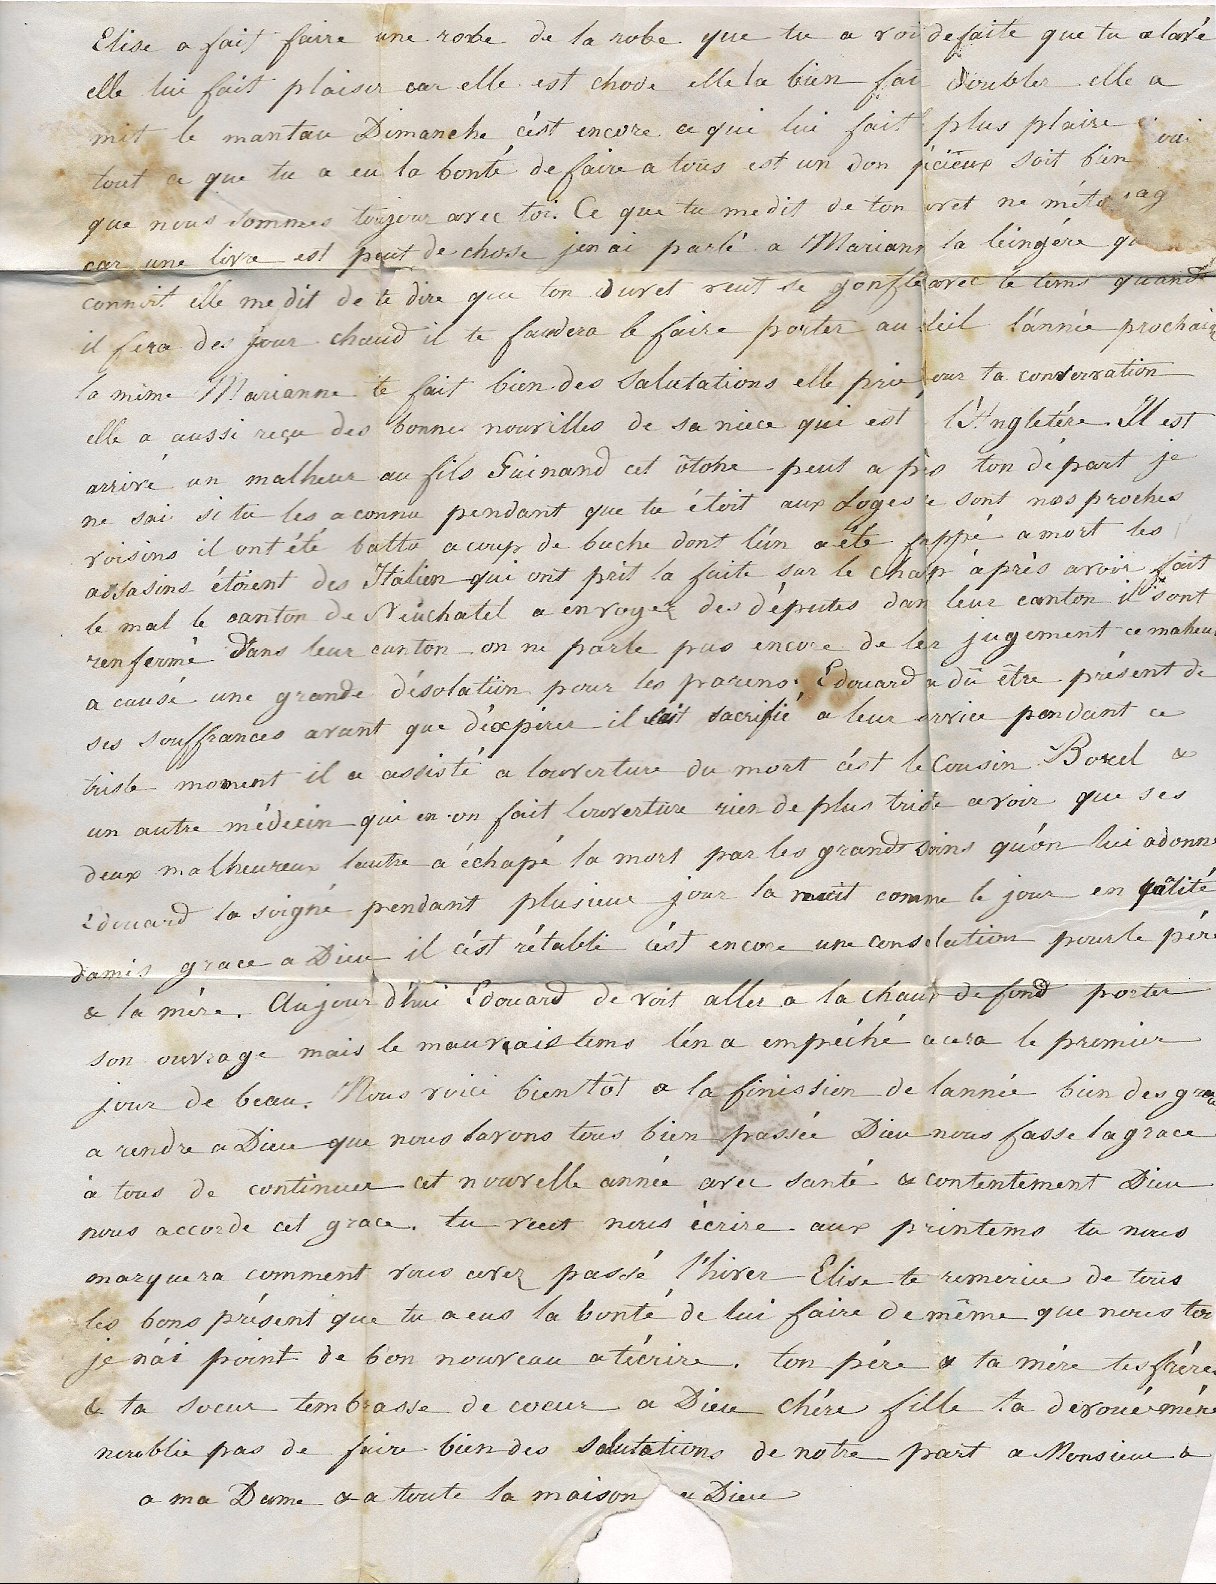 Elise a fait faire une robe de la robe que tu a voi defaite que tu a lavé
elle lui fait plaisir car elle est chode elle la bien fai doubler elle a
mit le mantau Dimanche c'ést encore ce qui lui fait plus plaire
tout ce que tu a eu la bonté de faire a tous est un don soit bien
que nous sommes toujour avec toi. Ce que tu me dit de ton
car une livre est peut de chose jen ai parlé a Mariann la leingére
connoit elle me dit de te dire que ton duvet veut se gonfle avec le tems quand
il fera des jour chaud il te faudera le faire porter au leil l'année prochain
la mime Marianne te fait bien des Salutations elle prie pour ta conservation
elle a aussi reçu des bonnes nouvilles de sa niece qui est l'Angletére. Il est
arrivé un malheur au fils Guinand cet ôtohe peut a près ton départ je
ne sai si tu les a connu pendant que tu étoit aux Loges ce sont nos proches
voisins il ont été battu a coups de buche dont l'un a éte frappé a mort les
assasins étoient des Italien qui ont prit la fuite sur le champ áprès avoir fait
le mal le canton de Neuchatel a envoyez des députes dan leur canton il sont
renfermé dans leur canton on ne parle pas encore de ler jugement ce maheur
a causé une grande désolation pour les parens. Edouard a dû être présent de
ses souffrances avant que d'éxpirer il sait sacrifié a leur service pendant ce
triste moment il a assisté a louverture du mort c'ést le Cousin Borel &
un autre médecin qui en on fait louverture rien de plus triste a voir que ses
deux malheureux lautre a échapé la mort par les grands soins qu'ón lui a donné
Edouard la soigné pendant plusieur jour la nuit comme le jour en qualité
d'amis grace a Dieu il c'ést rétabli c'ést encore une consolation pour le pére
& la mére. Aujourd'hui Edouard de voit aller a la chaux de fond porter
son ouvrage mais le mauvais tems l'én a empéché a cera le premier
jour de beau. Nous voici bientôt a la finission de lannée bien des grace
a rendre a Dieu que nous lavons tous bien passée Dieu nous fasse la grace
à tous de continuer cet nouvelle année avec santé & contentement Dieu
nous accorde cet grace. tu veut nous écrire aux printems tu nous
marquera comment vous avez passé l'hiver Elise te remercie de tous
les bons présent que tu a eus la bonté de lui faire de même que nous tou
je n'ái point de bon nouveau a t'écrire. ton pére & ta mére tes fréres
& ta soeur tembrasse de coeur a Dieu chére fille ta devouée mére
noublie pas de faire bien des salutations de notre part a Monsieur &
a ma Dame & a toute la maison a Dieu